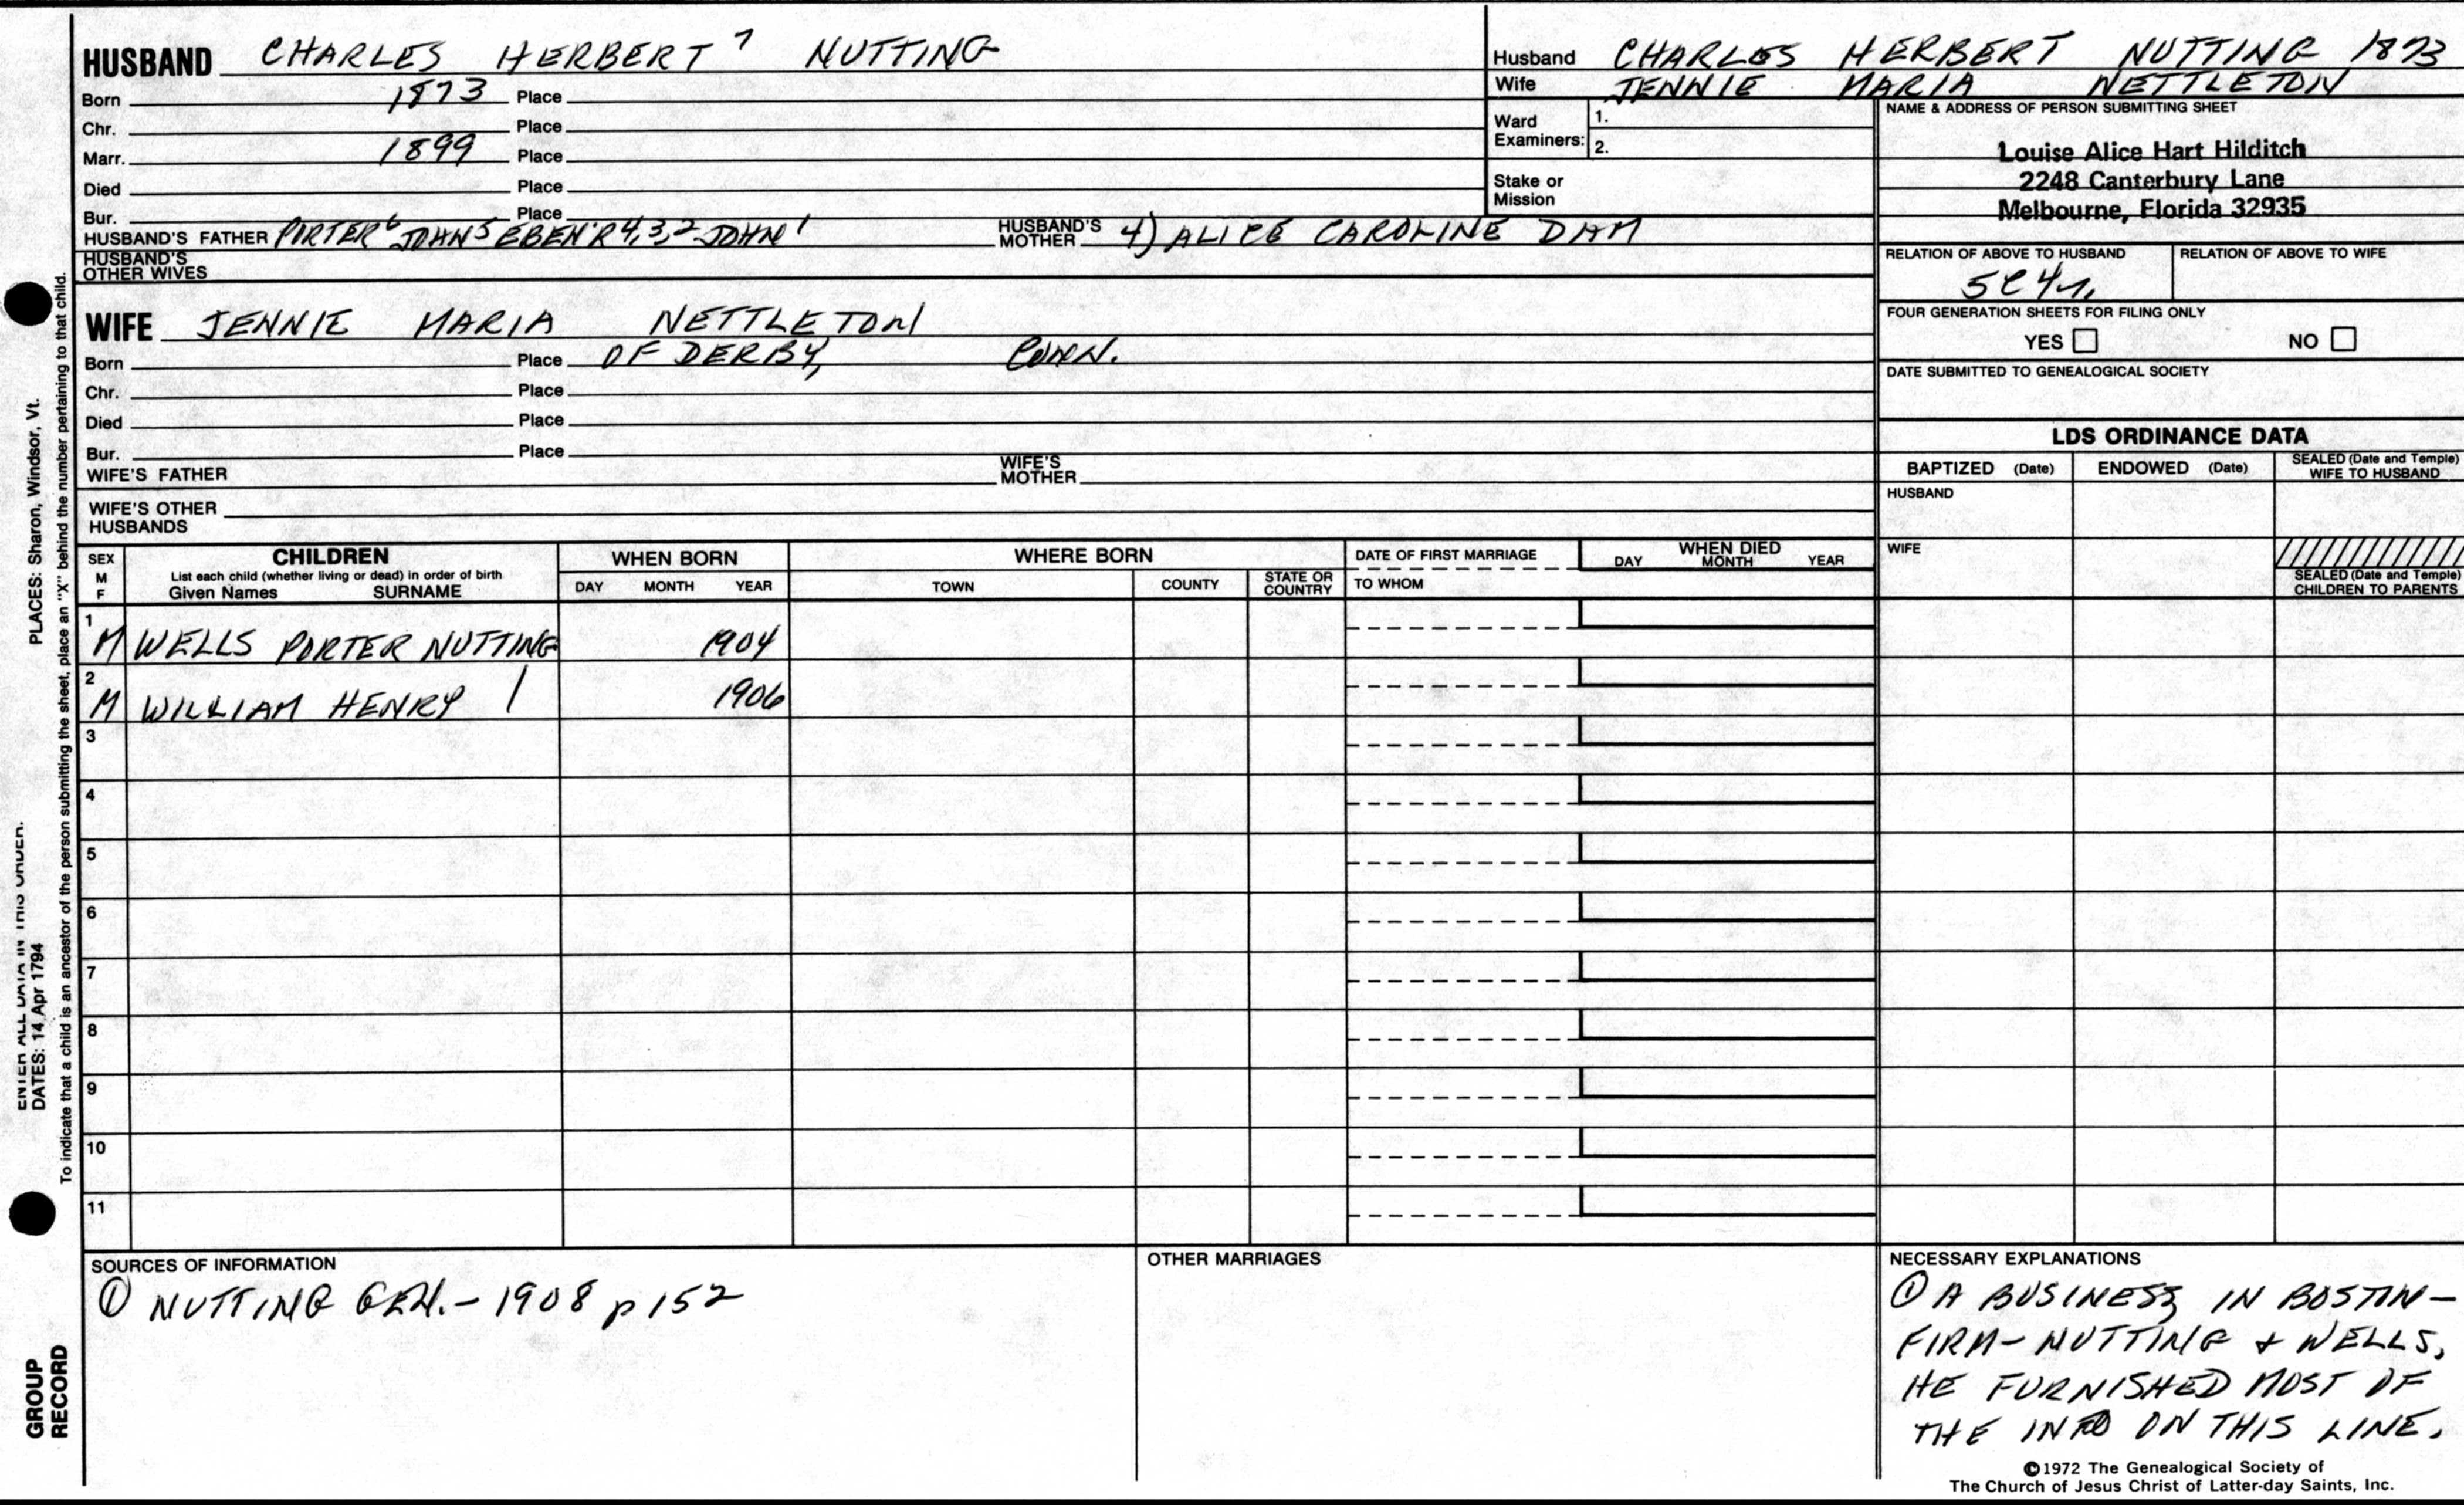 HUSBAND CHARLES HERBERT 7 NUTTING
Born 1873 Place
Chr. Place
Marr. 1899 Place
Died Place
Bur. Place
HUSBAND'S FATHER PORTER 6 JOHN 5 EBEN'R 4,3,2 JOHN 1 HUSBAND'S MOTHER 4) ALICE CAROLINE DAM
HUSBAND'S OTHER WIVES
WIFE JENNIE MARIA NETTLETON
Born Place OF DERBY, CONN.
Chr. Place
Died Place
Bur. Place
WIFE'S FATHER WIFE'S MOTHER
WIFE'S OTHER HUSBANDS
Husband CHARLES HERBERT NUTTING 1873
Wife JENNIE MARIA NETTLETON
Ward Examiners: 1.
2.
Stake or Mission
NAME & ADDRESS OF PERSON SUBMITTING SHEET
Louise Alice Hart Hilditch
2248 Canterbury Lane
Melbourne, Florida 32935
RELATION OF ABOVE TO HUSBAND RELATION OF ABOVE TO WIFE
5C4r.
FOUR GENERATION SHEETS FOR FILING ONLY
YES NO
DATE SUBMITTED TO GENEALOGICAL SOCIETY
LDS ORDINANCE DATA
BAPTIZED (Date) ENDOWED (Date) SEALED (Date and Temple) WIFE TO HUSBAND
HUSBAND
WIFE
SEALED (Date and Temple) CHILDREN TO PARENTS
SEX M F CHILDREN WHEN BORN WHERE BORN DATE OF FIRST MARRIAGE WHEN DIED
List each child (whether living or dead) in order of birth
Given Names SURNAME DAY MONTH YEAR TOWN COUNTY STATE OR COUNTRY TO WHOM DAY MONTH YEAR
1 M WELLS PORTER NUTTING 1904
2 M WILLIAM HENRY / 1906
3
4
5
6
7
8
9
10
11
SOURCES OF INFORMATION
① NUTTING GEN.- 1908 p 152
OTHER MARRIAGES
NECESSARY EXPLANATIONS
① A BUSINESS IN BOSTON-
FIRM- NUTTING & WELLS,
HE FURNISHED MOST OF
THE INFO ON THIS LINE.
©1972 The Genealogical Society of
The Church of Jesus Christ of Latter-day Saints, Inc.
ENTER ALL DATA IN THIS ORDER.
DATES: 14 Apr 1794 PLACES: Sharon, Windsor, Vt.
To indicate that a child is an ancestor of the person submitting the sheet, place an "X" behind the number pertaining to that child.
GROUP
RECORD